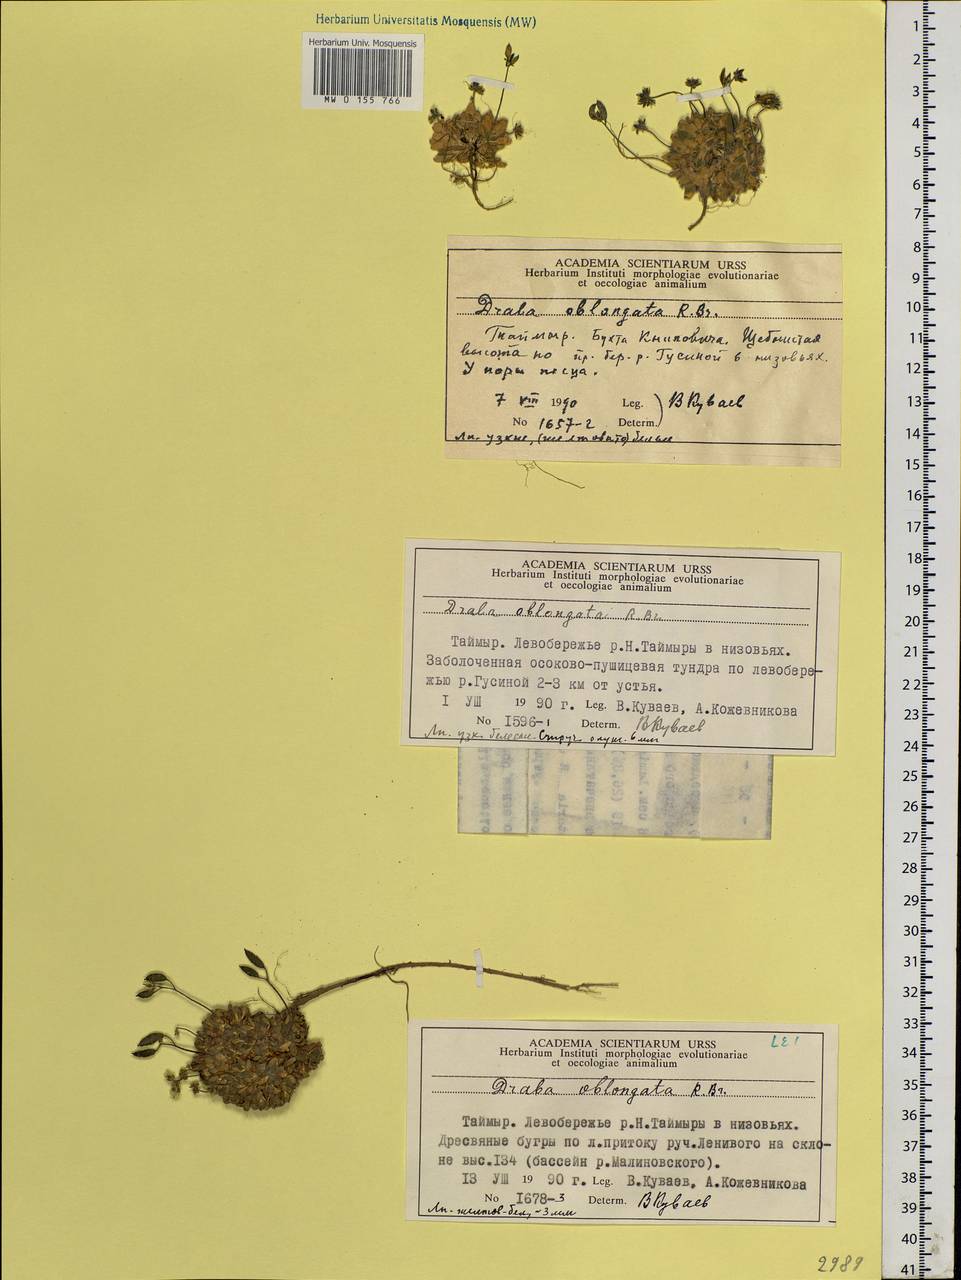 Herbarium Universitatis Mosquensis (MW)
Herbarium Univ. Mosquensis
MW 0 155 766
ACADEMIA SCIENTIARUM URSS
Herbarium Instituti morphologiae evolutionariae
et oecologiae animalium
Draba oblongata R.Br.
Таймыр. Бухта Книповича. Щебнистая
высота по пр. бер. р. Гусиной в низовьях.
У норы песца.
7 VIII 1990 Leg.
No 1657-2 Determ. ВКуваев
Лп. узкие, (желтовато) белые
ACADEMIA SCIENTIARUM URSS
Herbarium Instituti morphologiae evolutionariae
et oecologiae animalium
Draba oblongata R.Br.
Таймыр. Левобережье р.Н.Таймыры в низовьях.
Заболоченная осоково-пушицевая тундра по левобере-
жью р.Гусиной 2-3 км от устья.
I УШ 1990 г. Leg. В.Куваев, А.Кожевникова
No I596-I Determ. ВКуваев
Лп. узк. белесые. Струч. опуш. 6 мм
ACADEMIA SCIENTIARUM URSS
LE!
Herbarium Instituti morphologiae evolutionariae
et oecologiae animalium
Draba oblongata R.Br.
Таймыр. Левобережье р.Н.Таймыры в низовьях.
Дресвяные бугры по л.притоку руч.Ленивого на скло-
не выс.I34 (бассейн р.Малиновского).
I3 УШ 1990 г. Leg. В.Куваев, А.Кожевникова
No I678-3 Determ. ВКуваев
Лп. желтов-бел, ~3 мм
2989
1
2
3
4
5
6
7
8
9
10
11
12
13
14
15
16
17
18
19
20
21
22
23
24
25
26
27
28
29
30
31
32
33
34
35
36
37
38
39
40
41